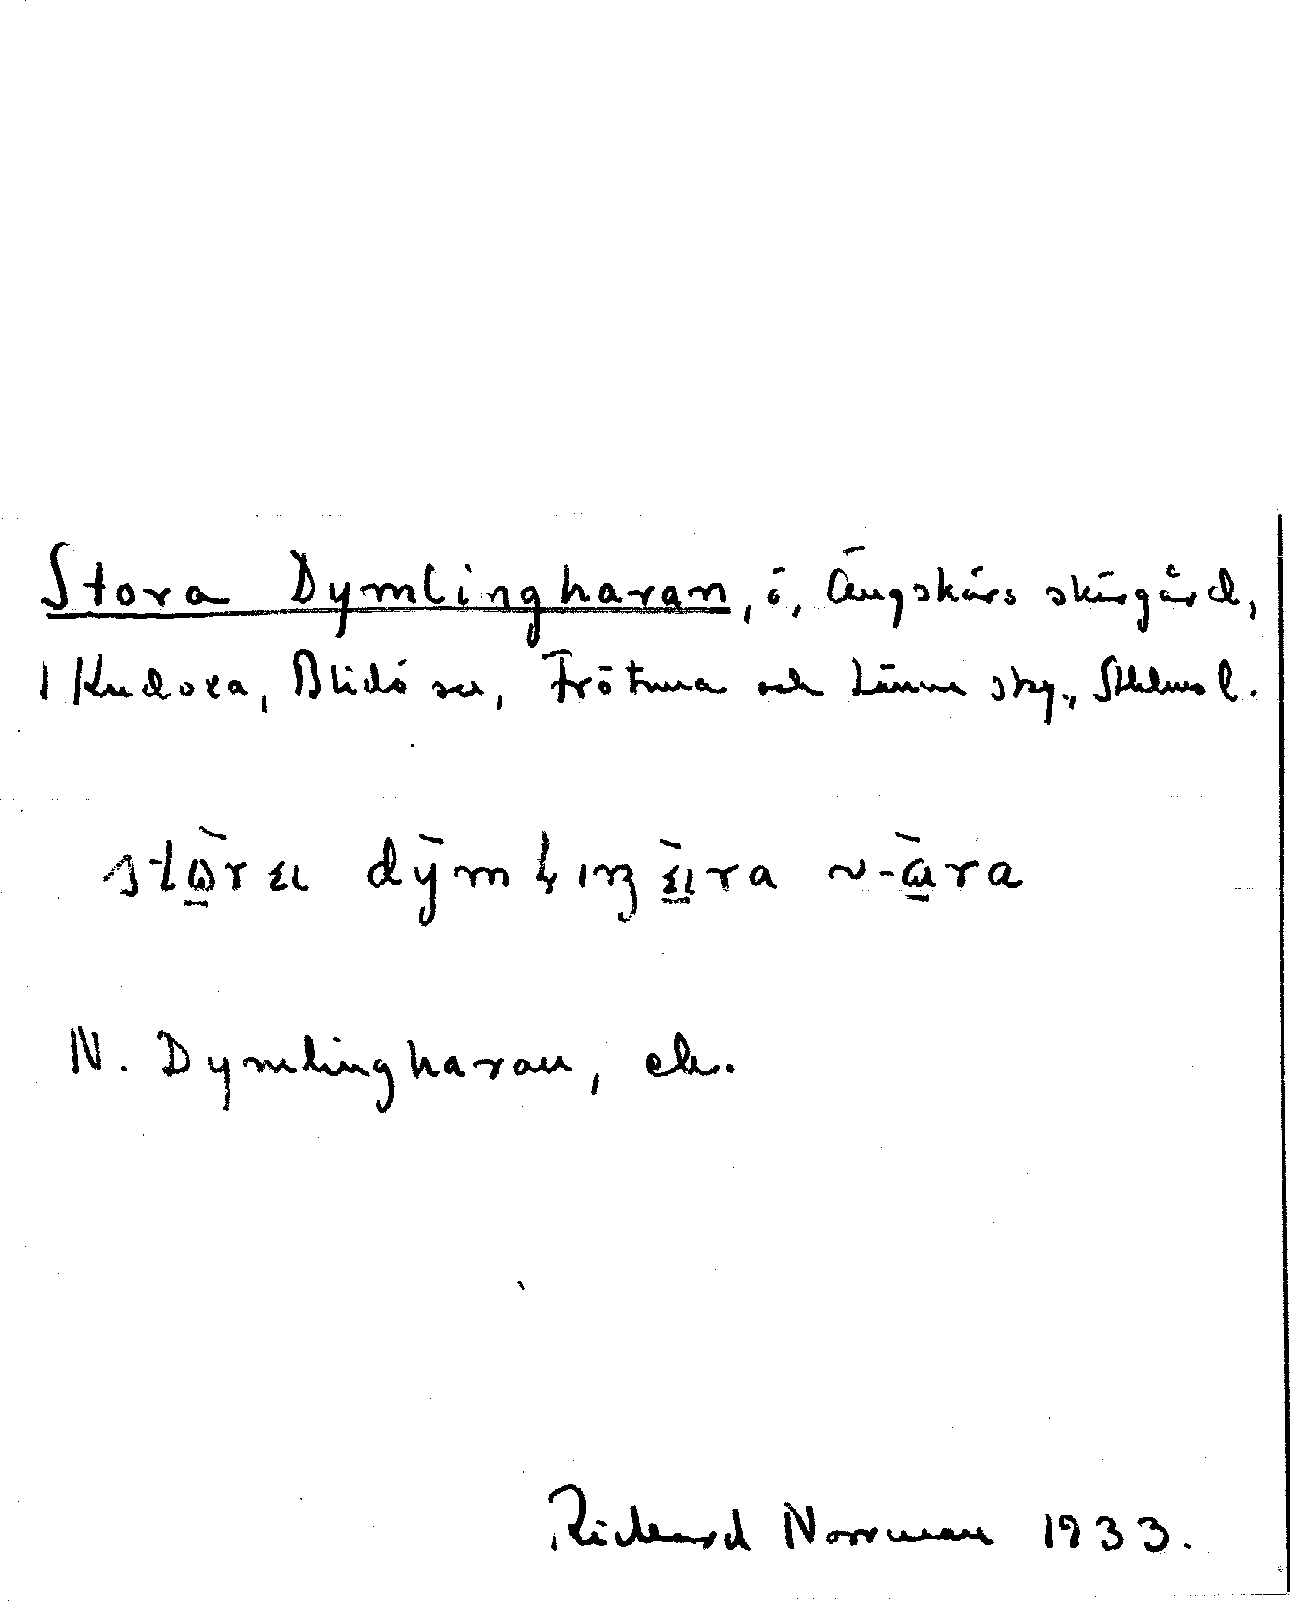 Stora Dymlingharan, ö, Ängskärs skärgård,
1 Kudoxa, Blidö sn, Frötuna och Länna skg., Sthlms l.
N. Dymlingharan, ek.
Richard Norrman 1933.